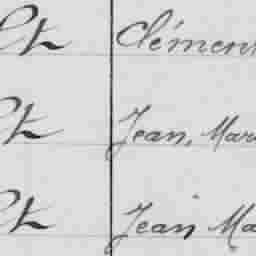 et Clémen
et Jean, Mar
et Jean Ma